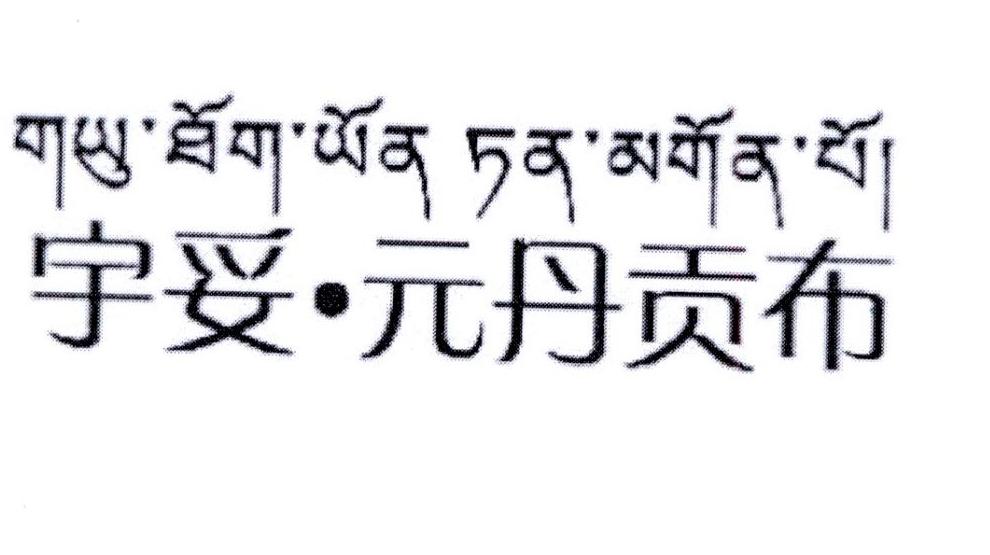 གཡུ་ཐོག་ཡོན ཏན་མགོན་པོ།
宇妥·元丹贡布